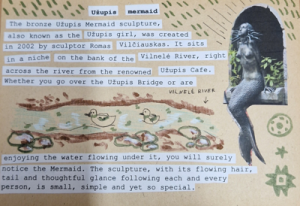 Užupis mermaid
The bronze Užupis Mermaid sculpture,
also known as the Užupis girl, was created
in 2002 by sculptor Romas Vilčiauskas. It sits
in a niche on the bank of the Vilnelė River, right
across the river from the renowned Užupis Cafe.
Whether you go over the Užupis Bridge or are
VILNELĖ RIVER
enjoying the water flowing under it, you will surely
notice the Mermaid. The sculpture, with its flowing hair,
tail and thoughtful glance following each and every
person, is small, simple and yet so special.